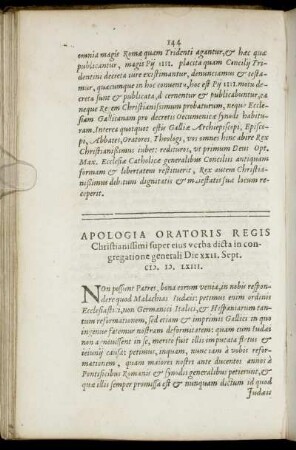 144
omnia magis Romæ quam Tridenti agantur, & hæc quæ
publicantur, magis Pij IIII. placita quam Concilij Tri-
dentini decreta iure existimantur, denunciamus & testa-
mur, quæcumque in hoc conuentu, hoc est Pij IIII. motu de-
creta sunt & publicata, decernentur & publicabuntur, ea
neque Regem Christianissimum probaturum, neque Eccle-
siam Gallicanam pro decretis Oecumenicæ synodi habitu-
ram. Interea quotquot estis Galliæ Archiepiscopi, Episco-
pi, Abbates, Oratores, Theologi, vos omnes hinc abire Rex
Christianissimus iubet: redituros, vt primum Deus Opt.
Max. Ecclesiæ Catholicæ generalibus Concilijs antiquam
formam & libertatem restituerit, Rex autem Christia-
nissimus debitum dignitatis & maiestatis suæ locum re-
ceperit.
APOLOGIA ORATORIS REGIS
Christianissimi super eius verba dicta in con-
gregatione generali Die XXII. Sept.
CIƆ. IƆ. LXIII.
NOn possunt Patres, bona eorum venia, in nobis respon-
dere quod Malachias Iudæis: petimus enim ordinis
Ecclesiastici, non Germanici Italici, & Hispaniarum tan-
tum reformationem, sed etiam & imprimis Gallici in quo
ingenue fatemur nostram deformitatem: quam cum Iudæi
non agnouissent in se, merito fuit illis imputata fletus &
ieiunij causa: petimus, inquam, nunc tam à vobis refor-
mationem, quam maiores nostri ante ducentos annos à
Pontificibus Romanis & synodis generalibus petierunt, &
quæ illis semper promissa est & nunquam dictum id quod
Iudæis